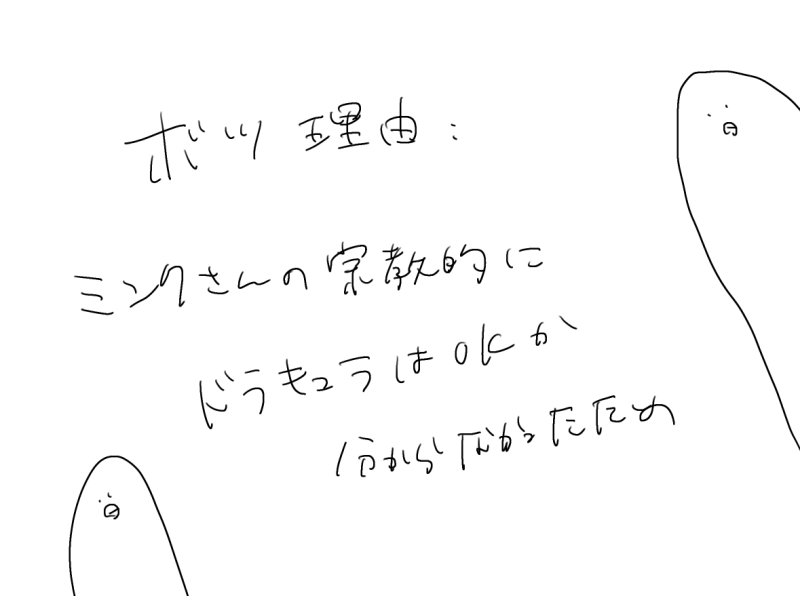 ボツ理由:
ミンクさんの宗教的に
ドラキュラはOKか
分からなかったため